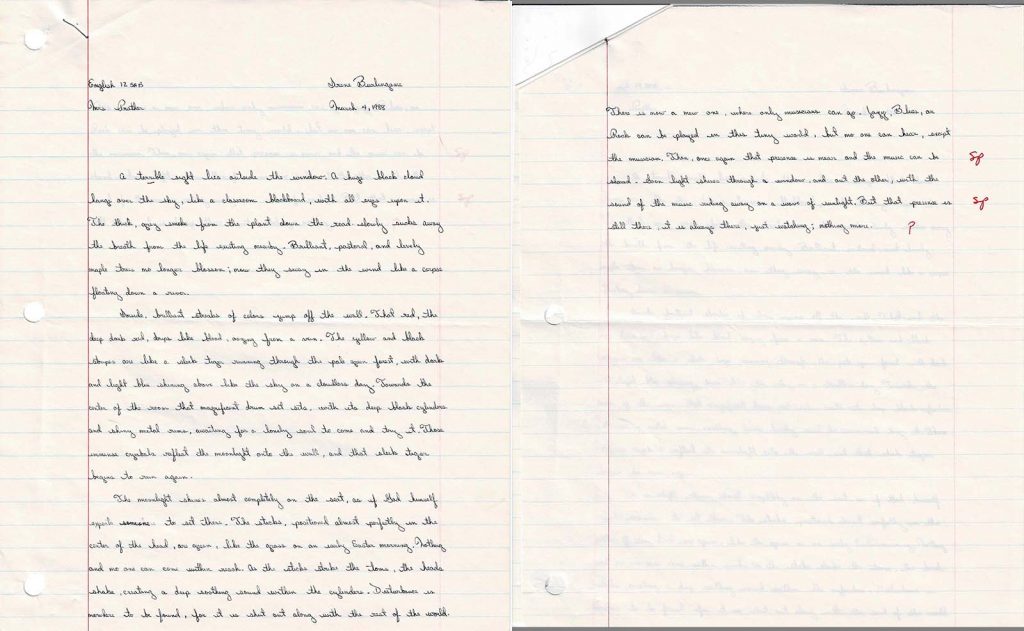 English 12 SAB Irene
Mrs. March 4, 1988
A terrible sight lies outside the window. A huge black cloud
hangs over the sky, like a classroom blackboard, with all eyes upon it.
The thick, grey smoke from the plant down the road slowly sucks away
the breath from the life exiting nearby. Brilliant, pastoral, and lovely
maple trees no longer blossom; now they sway in the wind like a corpse
floating down a river.
Inside, brilliant streaks of colors jump off the wall. That red, the
deep dark red, drips like blood, oozing from a vein. The yellow and black
stripes are like a sleek tiger running through the pale green forest, with dark
and light blue shining above like the sky on a cloudless day. Towards the
center of the room that magnificent drum set sits, with its deep black cylinders
and shiny metal rims, awaiting for a lonely soul to come and try it. Those
immense cymbals reflect the moonlight onto the wall, and that sleek tiger
begins to run again.
The moonlight shines almost completely on the seat, as if God himself
expects someone to sit there. The sticks, positioned almost perfectly in the
center of the head, are green, like the grass on an early Easter morning. Nothing
and no one can come within reach. As the sticks strike the toms, the heads
shake, creating a deep soothing sound within the cylinders. Disturbance is
nowhere to be found, for it is shut out along with the rest of the world.
There is now a new one, where only musicians can go. Jazz, Blues, or
Rock can be played in this tiny world, but no one can hear, except
the musician. Then, once again that presense is near and the music can be
shared. Soon light shines through a window, and out the other, with the
sound of the music riding away on a wave of sunlight. But that presense is
still there, it is always there, just watching; nothing more. ?
Sp
Sp